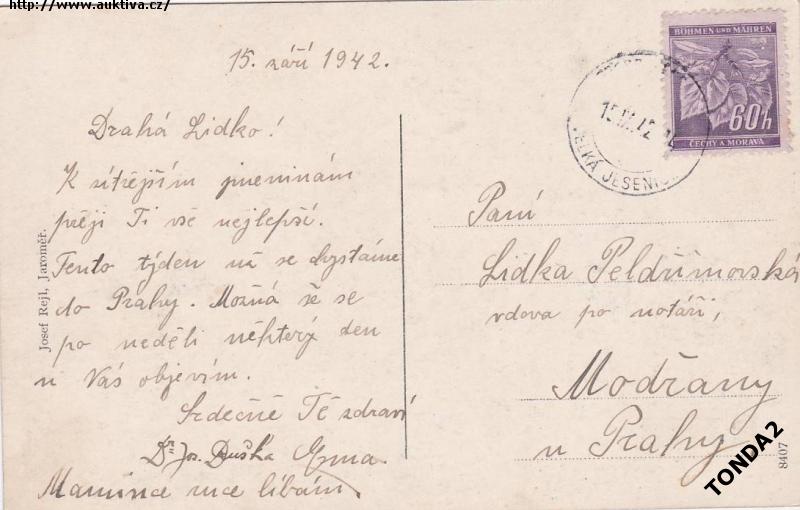 http://www.auktiva.cz/
15. září 1942.
Drahá Lidko!
K zítřejším jmeninám
přeji Ti vše nejlepší.
Tento týden už se chystáme
do Prahy. Možná že se
po neděli některý den
u Vás objevím.
Srdečně Tě zdraví
Dr. Jos. Duška Ema.
Mamince ruce líbám.
Josef Rejl, Jaroměř.
BÖHMEN UND MÄHREN
60h
ČECHY A MORAVA
15.IX.42
VELKÁ JESENICE
Paní
Lidka Peldřimovská
vdova po notáři,
Modřany
u Prahy
8407
TONDA2